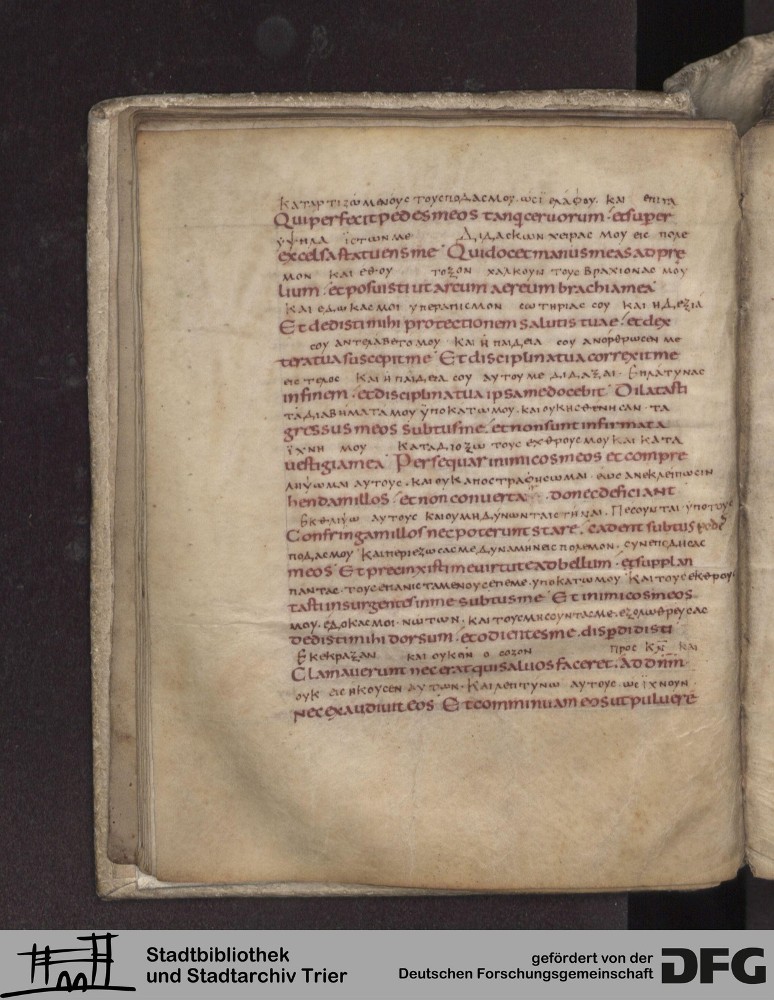 ΚΑΤΑΡΤΙΖΩΜΕΝΟΥC ΤΟΥCΠΟΔΑCΜΟΥ. ωCΪ ΕΛΑΦΟΥ. ΚΑΙ ΕΠΙΤΑ
Qui perfecit pedes meos tanq cervorum · et super
ΫΨΗΛΑ ΪCΤΩΝ ΜΕ ΔΙΔΑCΚΩΝ ΧΕΙΡΑC ΜΟΥ ΕΙC ΠΟΛΕ
excelsa statuens me · Qui docet manus meas ad pre
ΜΟΝ ΚΑΙ ΕΘΟΥ ΤΟΞΟΝ ΧΑΛΚΟΥΝ ΤΟΥC ΒΡΑΧΙΟΝΑC ΜΟΥ
lium · et posuisti ut arcum aereum brachia mea
ΚΑΙ ΕΔΩΚΑC ΜΟΙ ΥΠΕΡΑΠΙCΜΟΝ CΩΤΗΡΙΑC COY ΚΑΙ Η ΔΕΞΙΑ
Et dedisti mihi protectionem salutis tuae · et dex
COY ΑΝΤΕΛΑΒΕΤΟ ΜΟΥ · ΚΑΙ Η ΠΑΙΔΕΙΑ COY ΑΝΟΡΘΩCΕΝ ΜΕ
tera tua suscepit me · Et disciplina tua correxit me
ΕΙC ΤΕΛΟC ΚΑΙ Η ΠΑΙΔΕΙΑ COY ΑΥΤΟΥ ΜΕ ΔΙΔΑΞΑΙ · ΕΠΛΑΤΥΝΑC
in finem · et disciplina tua ipsa me docebit · Dilatasti
ΤΑ ΔΙΑΒΗΜΑΤΑ ΜΟΥ ΫΠΟΚΑΤΩ ΜΟΥ · ΚΑΙ ΟΥΚ ΗCΘΕΝΗCΑΝ · ΤΑ
gressus meos subtus me · et non sunt infirmata
ΪΧΝΗ ΜΟΥ ΚΑΤΑΔΙΟΞΩ ΤΟΥC ΕΧΘΡΟΥC ΜΟΥ ΚΑΙ ΚΑΤΑ
vestigia mea · Persequar inimicos meos et compre
ΛΗΨΩΜΑΙ ΑΥΤΟΥC · ΚΑΙ ΟΥΚ ΑΠΟCΤΡΑΦΗCΩΜΑΙ · ΕΩC ΑΝ ΕΚΛΕΙΠΩCΙΝ
hendam illos · et non converta · donec deficiant
ΕΚΘΛΙΨΩ ΑΥΤΟΥC ΚΑΙ ΟΥ ΜΗ ΔΥΝΩΝΤΑΙ CΤΗΝΑΙ · ΠΕCΟΥΝΤΑΙ ΥΠΟ ΤΟΥC
Confringam illos nec poterunt stare · cadent subtus pedes
ΠΟΔΑC ΜΟΥ ΚΑΙ ΠΕΡΙΕΖΩCΑC ΜΕ ΔΥΝΑΜΗΝ ΕΙC ΠΟΛΕΜΟΝ · CΥΝΕΠΟΔΗCΑC
meos · Et precinxisti me virtute ad bellum · et supplan
ΠΑΝΤΑC · ΤΟΥC ΕΠΑΝΙCΤΑΜΕΝΟΥC ΕΠ ΕΜΕ · ΥΠΟΚΑΤΩ ΜΟΥ ΚΑΙ ΤΟΥC ΕΚΘΡΟΥC
tasti insurgentes in me subtus me · Et inimicos meos
ΜΟΥ · ΕΔΟΚΑC ΜΟΙ ΝΩΤΩΝ · ΚΑΙ ΤΟΥC ΜΗCΟΥΝΤΑC ΜΕ · ΕΞΟΛΩΘΡΕΥCΑC
dedisti mihi dorsum · et odientes me · dispdidisti
ΕΚΕΚΡΑΞΑΝ ΚΑΙ ΟΥΚ ΗΝ Ο CΟΖΟΝ ΠΡΟC ΚΝ ΚΑΙ
Clamaverunt nec erat qui salvos faceret · ad dnm
ΟΥΚ ΕΙCΗΚΟΥCΕΝ ΑΥΤΩΝ · ΚΑΙ ΛΕΠΤΥΝΩ ΑΥΤΟΥC · ωC ΪΧΝΟΥΝ
Nec exaudivit eos · Et comminuam eos ut pulvere
Stadtbibliothek
und Stadtarchiv Trier
gefördert von der
Deutschen Forschungsgemeinschaft
DFG